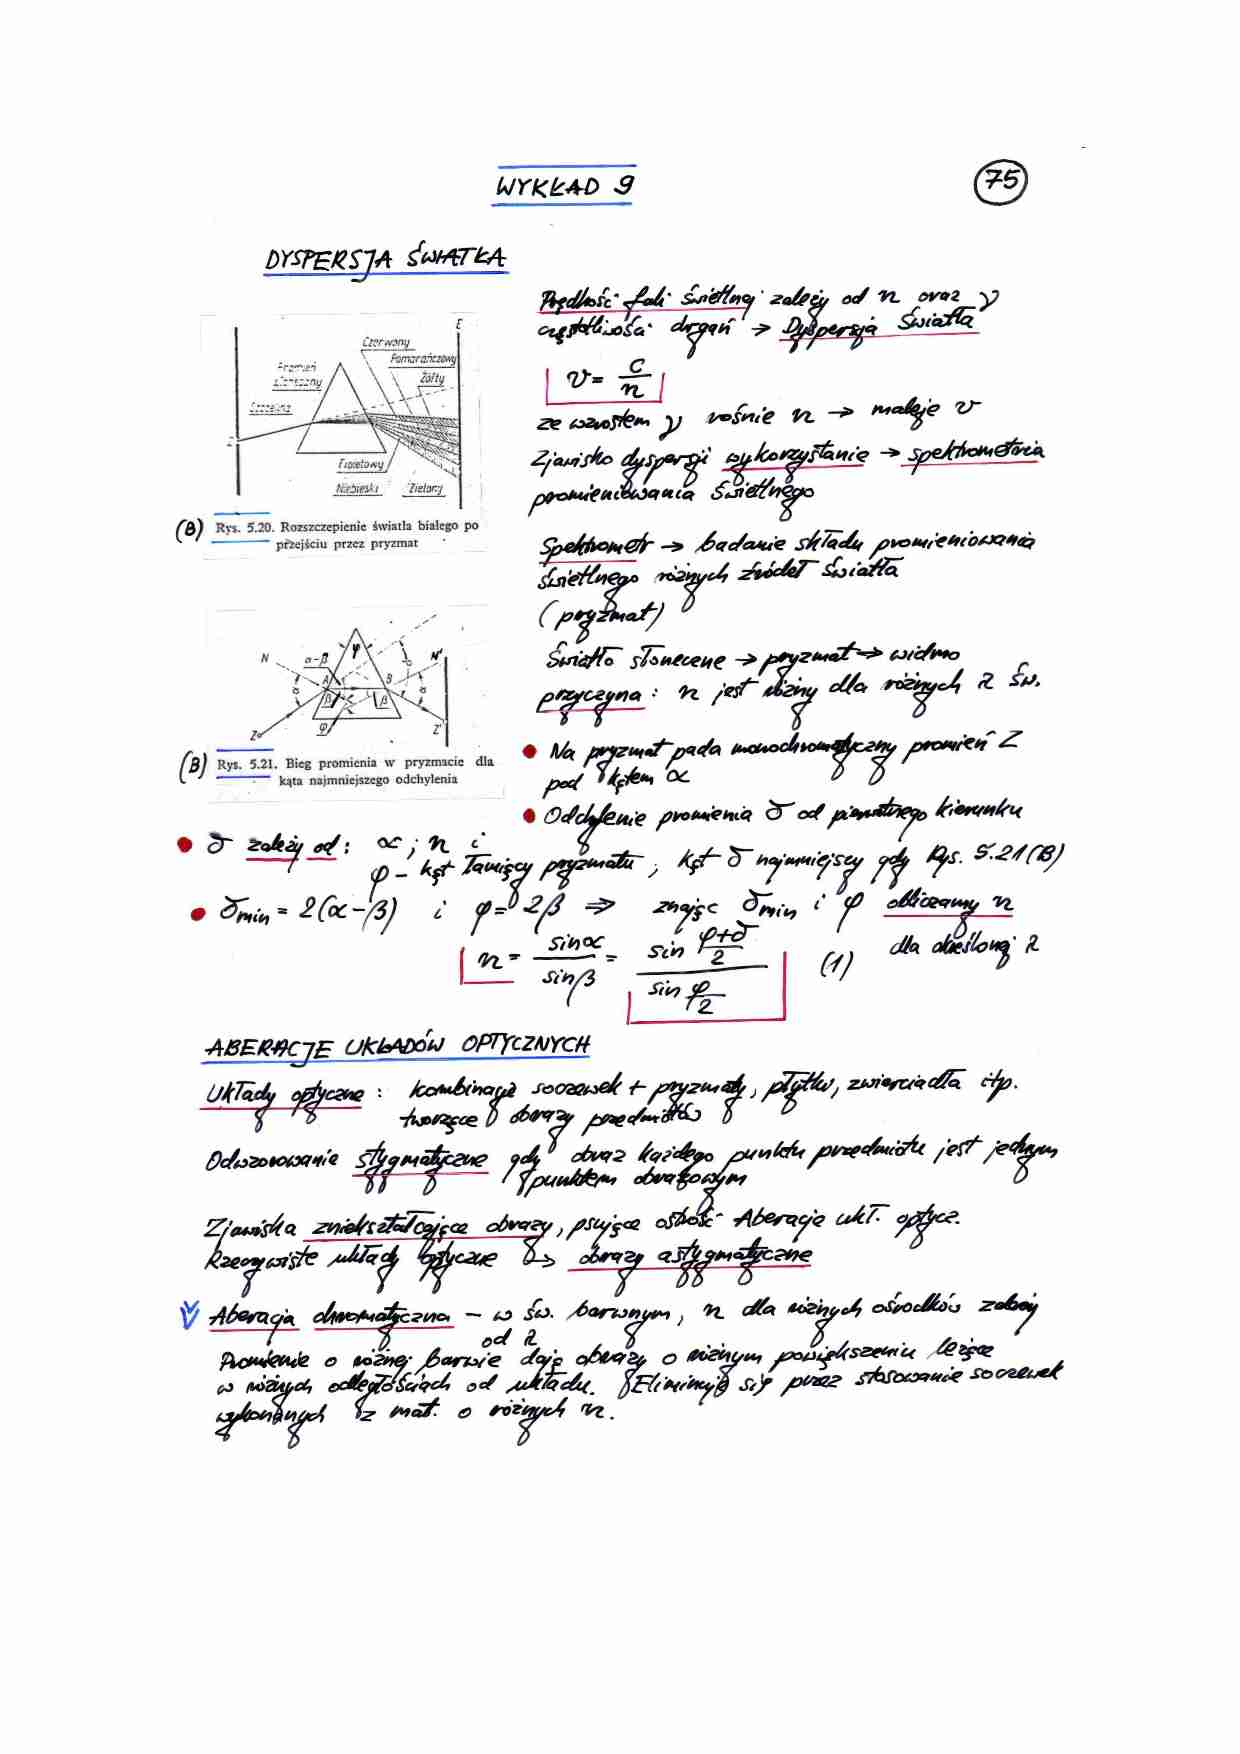 WYKŁAD 9
75
DYSPERSJA ŚWIATŁA
Prędkość fali świetlnej zależy od n oraz ν
częstotliwości drgań → Dyspersja Światła
v = c/n
ze wzrostem ν rośnie n → maleje v
Zjawisko dyspersji wykorzystanie → spektrometria
promieniowania świetlnego
E
Czerwony
Pomarańczowy
Żółty
Promień
słoneczny
Szczelina
Z
Fioletowy
Niebieski
Zielony
(B) Rys. 5.20. Rozszczepienie światła białego po
przejściu przez pryzmat
Spektrometr → badanie składu promieniowania
świetlnego różnych źródeł światła
(pryzmat)
Światło słoneczne → pryzmat → widmo
przyczyna: n jest różny dla różnych λ św.
N α-β φ δ N'
α A B α
β β
Z φ Z'
(B) Rys. 5.21. Bieg promienia w pryzmacie dla
kąta najmniejszego odchylenia
• Na pryzmat pada monochromatyczny promień Z
pod kątem α
• Odchylenie promienia δ od pierwotnego kierunku
• δ zależy od: α; n i
φ - kąt łamiący pryzmatu; kąt δ najmniejszy gdy Rys. 5.21(B)
• δmin = 2(α-β) i φ = 2β ⇒ znając δmin i φ obliczamy n
dla określonej λ
n = sinα/sinβ = sin (φ+δ)/2 / sin φ/2 (1)
ABERACJE UKŁADÓW OPTYCZNYCH
Układy optyczne: kombinacje soczewek + pryzmaty, płytki, zwierciadła itp.
tworzące obrazy przedmiotów
Odwzorowanie stygmatyczne gdy obraz każdego punktu przedmiotu jest jednym
punktem obrazowym
Zjawiska zniekształcające obrazy, psujące ostrość Aberacje ukł. optycz.
Rzeczywiste układy optyczne → obrazy astygmatyczne
Aberacja chromatyczna - w św. barwnym, n dla różnych ośrodków zależy
od λ
Promienie o różnej barwie dają obrazy o różnym powiększeniu leżące
w różnych odległościach od układu. Eliminuje się przez stosowanie soczewek
wykonanych z mat. o różnych n.